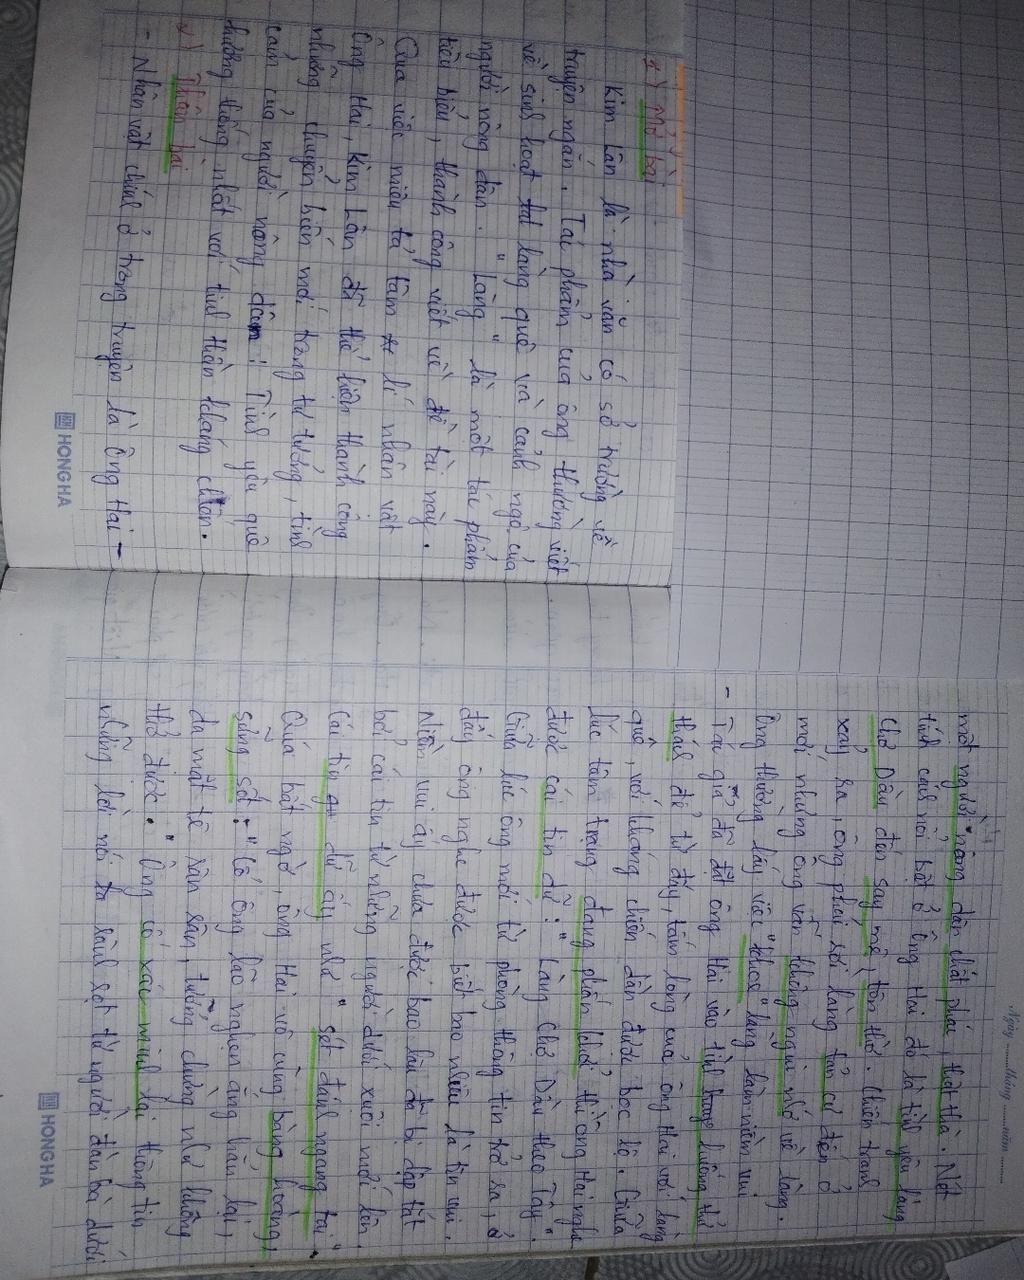 1) Mở bài
Kim Lân là nhà văn có sở trường về
truyện ngắn. Tác phẩm của ông thường viết
về sinh hoạt làng quê và cảnh ngộ của
người nông dân. "Làng" là một tác phẩm
tiêu biểu, thành công viết về đề tài này.
Qua việc miêu tả tâm lí nhân vật
ông Hai, Kim Lân đã thể hiện thành công
những chuyển biến mới trong tư tưởng, tình
cảm của người nông dân: Tình yêu quê
hương thống nhất với tinh thần kháng chiến.
2) Thân bài
- Nhân vật chính ở trong truyện là ông Hai -
HONG HA
Ngày ........ tháng ........ năm ........
một người nông dân chất phác, thật thà. Nét
tính cách nổi bật ở ông Hai đó là tình yêu làng
Chợ Dầu đến say mê, tôn thờ. Chiến tranh
xảy ra, ông phải rời làng tản cư đến ở
mới nhưng ông vẫn không nguôi nhớ về làng.
Ông thường lấy việc "khoe" làng làm niềm vui
- Tác giả đã đặt ông Hai vào tình huống thử
thách để từ đấy, tấm lòng của ông Hai với làng
quê, với kháng chiến dần được bộc lộ. Giữa
lúc tâm trạng đang phấn khởi thì ông Hai nghe
được cái tin dữ: "Làng Chợ Dầu theo Tây".
Giữa lúc ông mới từ phòng thông tin trở ra, ở
đấy ông nghe được biết bao nhiêu là tin vui.
Niềm vui ấy chưa được bao lâu đã bị dập tắt
bởi cái tin từ những người dưới xuôi mới lên.
Cái tin dữ ấy như "sét đánh ngang tai".
Quá bất ngờ, ông Hai vô cùng bàng hoàng,
sững sờ: "Cổ ông lão nghẹn ắng hẳn lại,
da mặt tê rân rân, tưởng chừng như không
thở được". Ông cố xác minh lại thông tin
nhưng lời nói rành rọt từ người đàn bà dưới
HONG HA